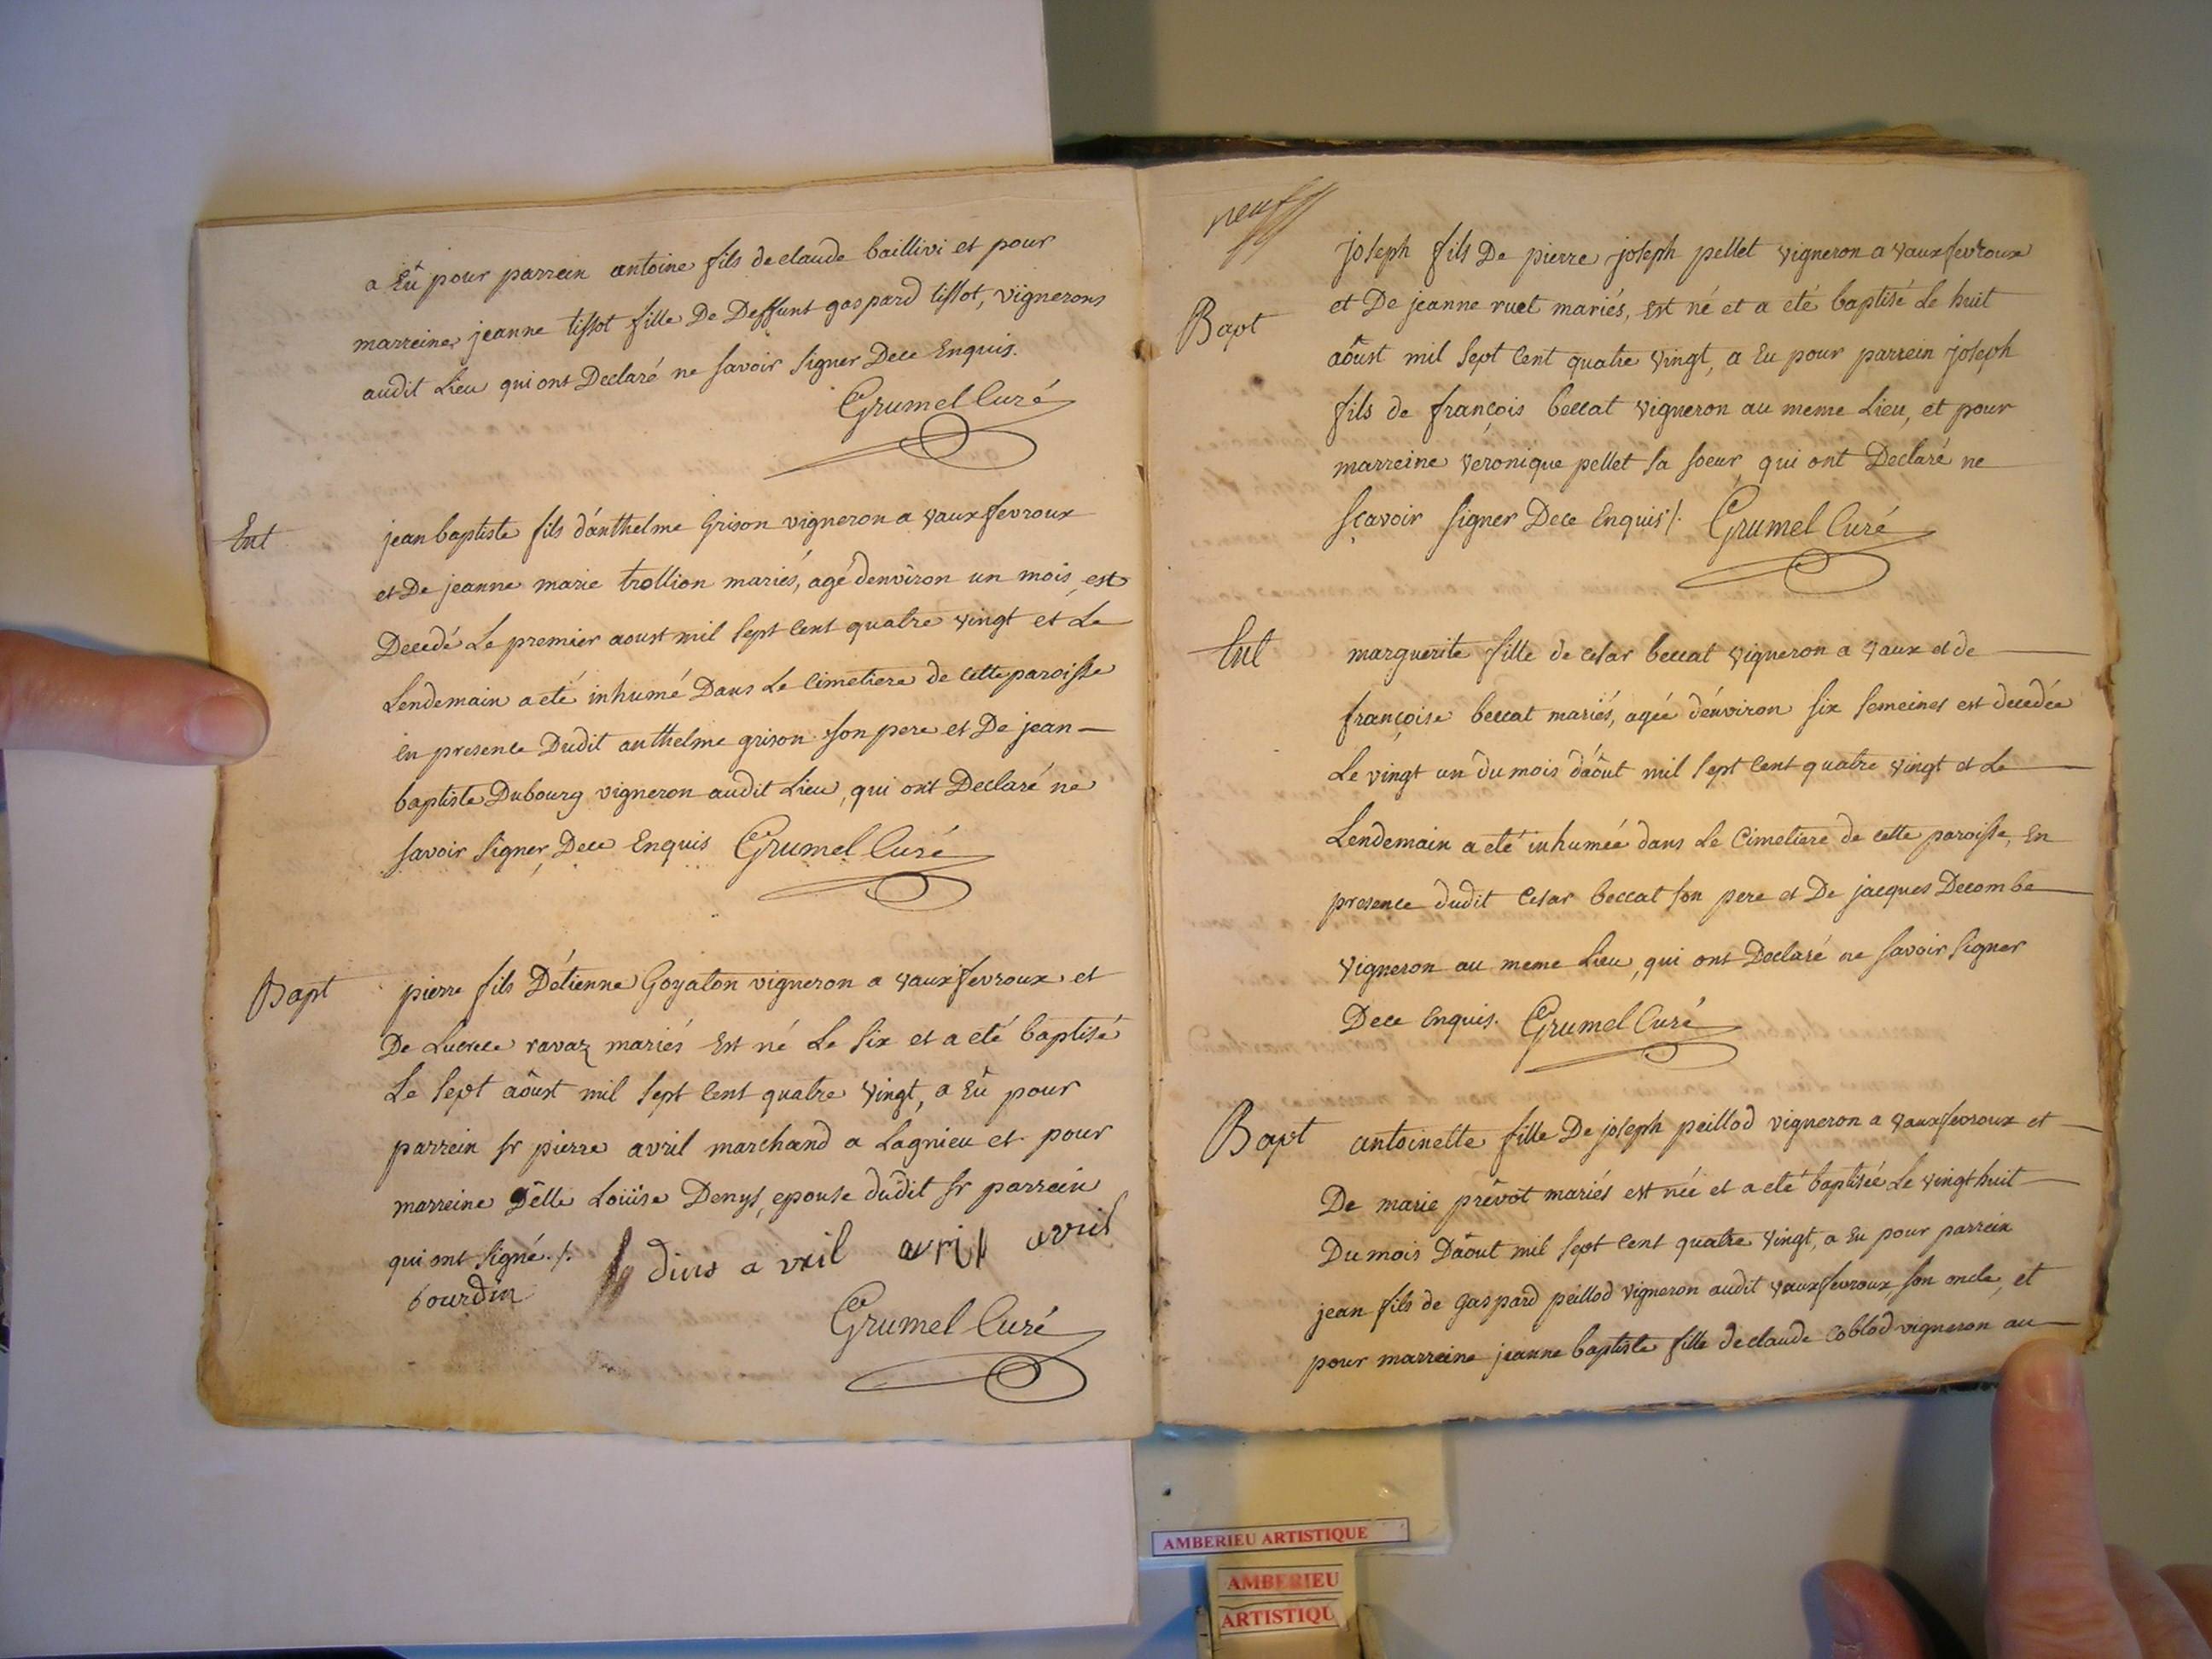 a Eû pour parrein antoine fils de claude baillivi et pour
marreine jeanne tissot fille De Deffunt gaspard tissot, vignerons
audit Lieu qui ont Declaré ne savoir signer Dece Enquis.
Grumel Curé
Ent
jean baptiste fils d'anthelme Grison vigneron a vaux fevroux
et De jeanne marie trollion mariés, agé d'environ un mois, est
Decedé Le premier aoust mil sept cent quatre vingt et Le
Lendemain a eté inhumé Dans Le Cimetiere de cette paroisse
en presence Dudit anthelme grison son pere et De jean-
baptiste Dubourg vigneron audit Lieu, qui ont Declaré ne
savoir signer, Dece Enquis Grumel Curé
Bapt
pierre fils D'étienne Goyaton vigneron a vaux fevroux et
De Lucrece ravaz mariés Est né Le six et a eté baptisé
Le sept aôust mil sept cent quatre vingt, a Eû pour
parrein sr pierre avril marchand a Lagnieu et pour
marreine Delle Loüise Denys, epouse dudit sr parrein
qui ont signé ./. avril avril avril
bourdin
Grumel Curé
neuf
Bapt
joseph fils De pierre joseph pellet vigneron a vaux fevroux
et De jeanne ruet mariés, est né et a été baptisé Le huit
aôust mil sept cent quatre vingt, a Eu pour parrein joseph
fils de françois beccat vigneron au meme Lieu, et pour
marreine veronique pellet sa soeur, qui ont Declaré ne
sçavoir signer Dece Enquis ./. Grumel Curé
Ent
marguerite fille de cesar beccat vigneron a vaux et de
françoise beccat mariés, agée d'environ six semeines est decedée
Le vingt un du mois d'aôut mil sept cent quatre vingt et Le
Lendemain a eté inhumée dans Le Cimetiere de cette paroisse, En
presence dudit Cesar beccat son pere et De jacques Decombe
vigneron au meme Lieu, qui ont Declaré ne savoir signer
Dece Enquis. Grumel Curé
Bapt
antoinette fille De joseph peillod vigneron a vaux fevroux et
De marie prêvot mariés est née et a eté baptisée Le vingt huit
Du mois D'aôut mil sept cent quatre vingt, a Eu pour parrein
jean fils de Gaspard peillod vigneron audit vaux fevroux, son oncle, et
pour marreine jeanne baptiste fille de claude Coblod vigneron au
AMBERIEU ARTISTIQUE
AMBERIEU
ARTISTIQU